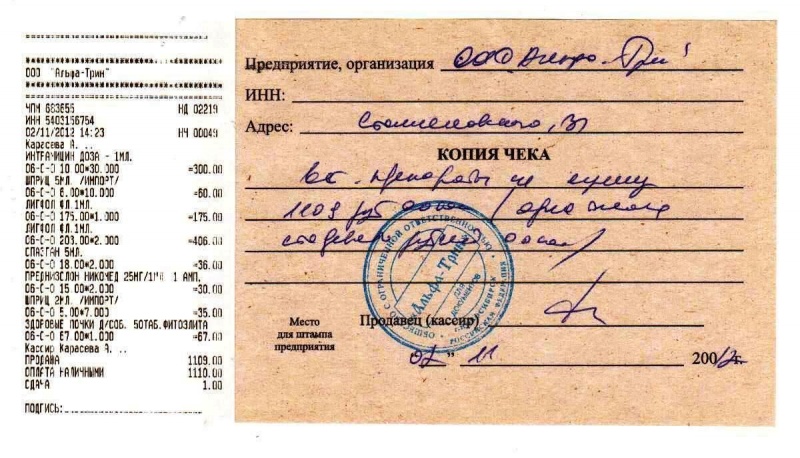 ООО "Альфа-Трин"
ЧПМ 683656 НД 02219
ИНН 5403156754
02/11/2012 14:23 НЧ 00049
Карасева А. ..
ИНТРАМИЦИН ДОЗА - 1МЛ.
06-С-О 10.00*30.000 =300.00
ШПРИЦ 5МЛ. /ИМПОРТ/
06-С-О 6.00*10.000 =60.00
ЛИГФОЛ ФЛ.1МЛ.
06-С-О 175.00*1.000 =175.00
ЛИГФОЛ ФЛ.1МЛ.
06-С-О 203.00*2.000 =406.00
СПАЗГАН 5МЛ.
06-С-О 18.00*2.000 =36.00
ПРЕДНИЗОЛОН НИКОМЕД 25МГ/1МЛ 1 АМП.
06-С-О 15.00*2.000 =30.00
ШПРИЦ 2МЛ. /ИМПОРТ/
06-С-О 5.00*7.000 =35.00
ЗДОРОВЫЕ ПОЧКИ Д/СОБ. 50ТАБ.ФИТОЭЛИТА
06-С-О 67.00*1.000 =67.00
Кассир Карасева А. ..
ПРОДАЖА 1109.00
ОПЛАТА НАЛИЧНЫМИ 1110.00
СДАЧА 1.00
ПОДПИСЬ:
Предприятие, организация ООО
ИНН:
Адрес: 31
КОПИЯ ЧЕКА
вет. препараты на сумму
1109 руб 00 коп / одна тысяча
сто девять рублей 00 коп /
ОБЩЕСТВО С ОГРАНИЧЕННОЙ ОТВЕТСТВЕННОСТЬЮ
"Альфа-Трин"
для документов
НОВОСИБИРСК
РОССИЙСКАЯ ФЕДЕРАЦИЯ
Продавец (кассир)
Место
для штампа
предприятия
02 " 11 2002 г.